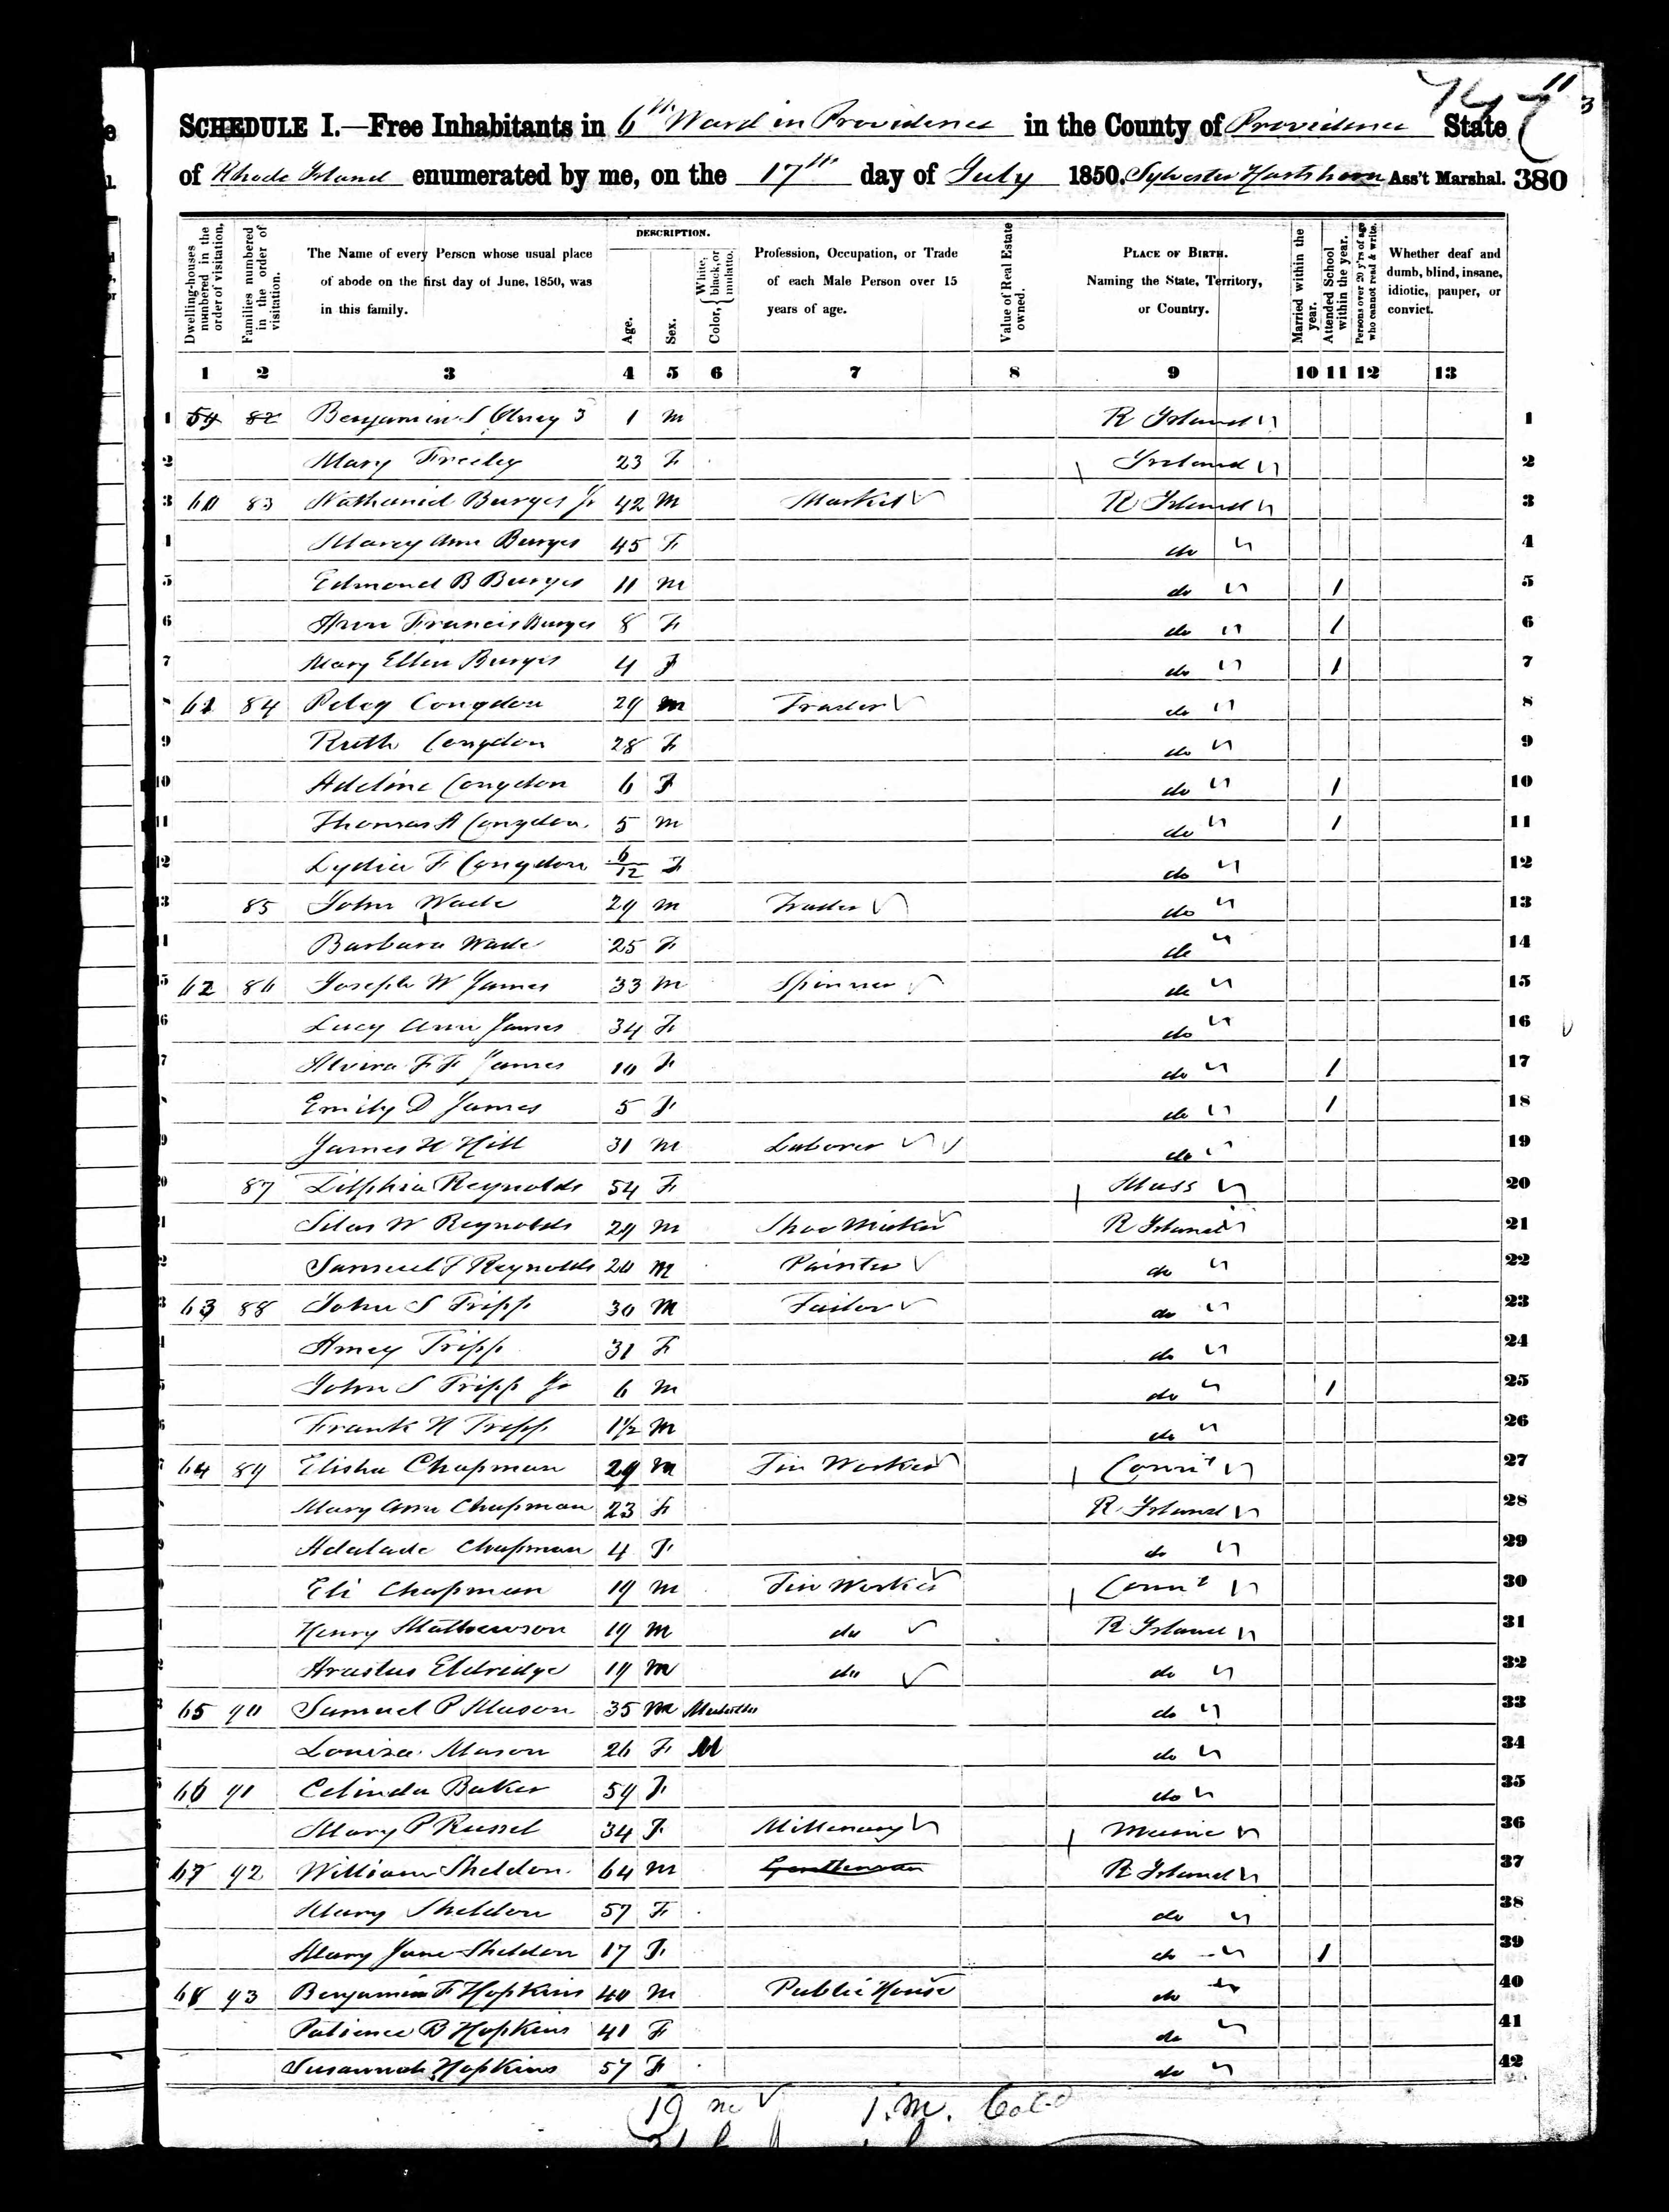 11
3
SCHEDULE I.—Free Inhabitants in 6th Ward in Providence in the County of Providence State
of Rhode Island enumerated by me, on the 17th day of July 1850. Sylvester Hartshorn Ass't Marshal. 380
Dwelling-houses numbered in the order of visitation.
Families numbered in the order of visitation.
The Name of every Person whose usual place of abode on the first day of June, 1850, was in this family.
DESCRIPTION.
Age.
Sex.
Color, { White, black, or mulatto.
Profession, Occupation, or Trade of each Male Person over 15 years of age.
Value of Real Estate owned.
PLACE OF BIRTH. Naming the State, Territory, or Country.
Married within the year.
Attended School within the year.
Persons over 20 y'rs of age who cannot read & write.
Whether deaf and dumb, blind, insane, idiotic, pauper, or convict.
1 2 3 4 5 6 7 8 9 10 11 12 13
1 59 82 Benjamin S Olney 3 1 m R Island 1
2 Mary Freeley 23 F Ireland 2
3 60 83 Nathaniel Burges Jr 42 m Market R Island 3
4 Marcy Ann Burges 45 F do 4
5 Edmond B Burges 11 m do 1 5
6 Ann Francis Burges 8 F do 1 6
7 Mary Ellen Burges 4 F do 1 7
61 84 Peleg Congdon 29 m Trader do 8
9 Ruth Congdon 28 F do 9
10 Adeline Congdon 6 F do 1 10
11 Thomas A Congdon 5 m do 1 11
12 Lydia F Congdon 6/12 F do 12
13 85 John Wade 29 m Trader do 13
Barbara Wade 25 F do 14
15 62 86 Joseph W James 33 m Spinner do 15
16 Lucy Ann James 34 F do 16
17 Alvira F F James 10 F do 1 17
Emily D James 5 F do 1 18
James H Hill 31 m Laborer do 19
87 Reynolds 54 F Mass 20
Silas W Reynolds 29 m Shoe Maker R Island 21
Samuel T Reynolds 20 m Painter do 22
63 88 John S Tripp 30 m Tailor do 23
Amey Tripp 31 F do 24
John S Tripp Jr 6 m do 1 25
Frank H Tripp 1½ m do 26
64 89 Elisha Chapman 29 m Tin Worker Conn't 27
Mary Ann Chapman 23 F R Island 28
Adalade Chapman 4 F do 29
Eli Chapman 19 m Tin Worker Conn't 30
Henry Mathewson 19 m do R Island 31
Arastus Eldridge 19 m do do 32
65 90 Samuel P Mason 35 m Mulatto do 33
Louisa Mason 26 F M do 34
66 91 Celinda Baker 59 F do 35
Mary P Russel 34 F Millenary Maine 36
67 92 William Sheldon 64 m Gentleman R Island 37
Mary Sheldon 57 F do 38
Mary Jane Sheldon 17 F do 1 39
68 93 Benjamin F Hopkins 40 m Public House do 40
Patience B Hopkins 41 F do 41
Susannah Hopkins 57 F do 42
19 m 1. m. Cold